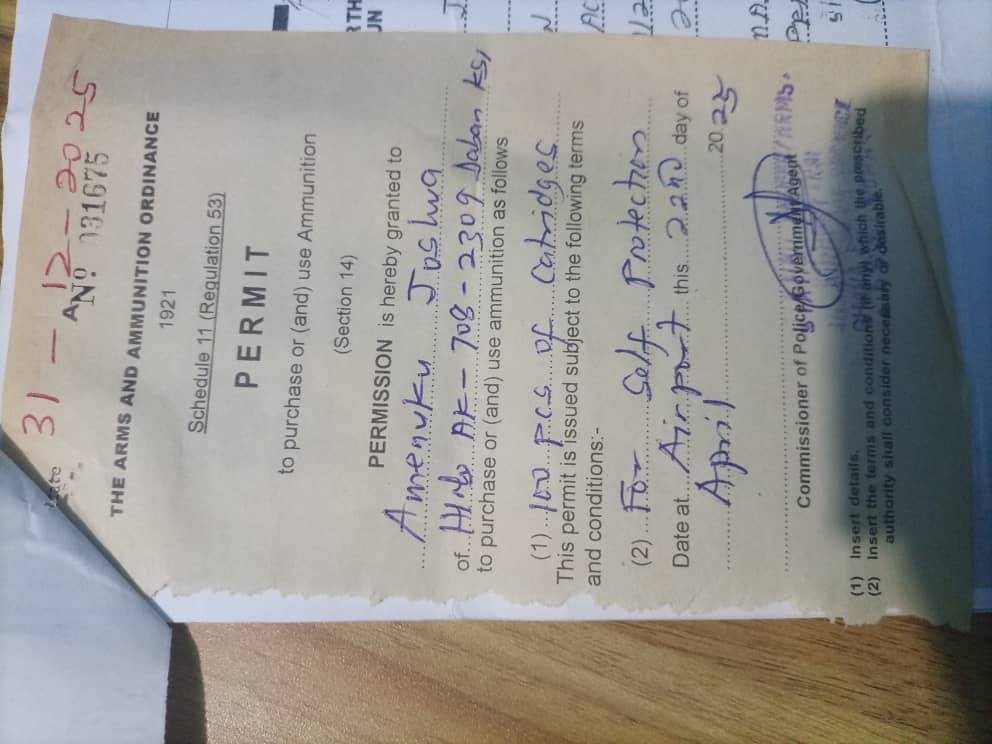 31 - 12 - 2025
Date
A Nº 031675
THE ARMS AND AMMUNITION ORDINANCE
1921
Schedule 11 (Regulation 53)
PERMIT
to purchase or (and) use Ammunition
(Section 14)
PERMISSION is hereby granted to
Amenuku Joshua
of H/No AK-708-2309 Daban KSI
to purchase or (and) use ammunition as follows
(1) 100 pcs of Catridges
This permit is issued subject to the following terms
and conditions:-
(2) For Self Protection
Date at Airport this 22nd day of
April 2025
Commissioner of Police/Government Agent
/ARMS.
(1) Insert details.
(2) Insert the terms and conditions (if any) which the prescribed
authority shall consider necessary or desirable.